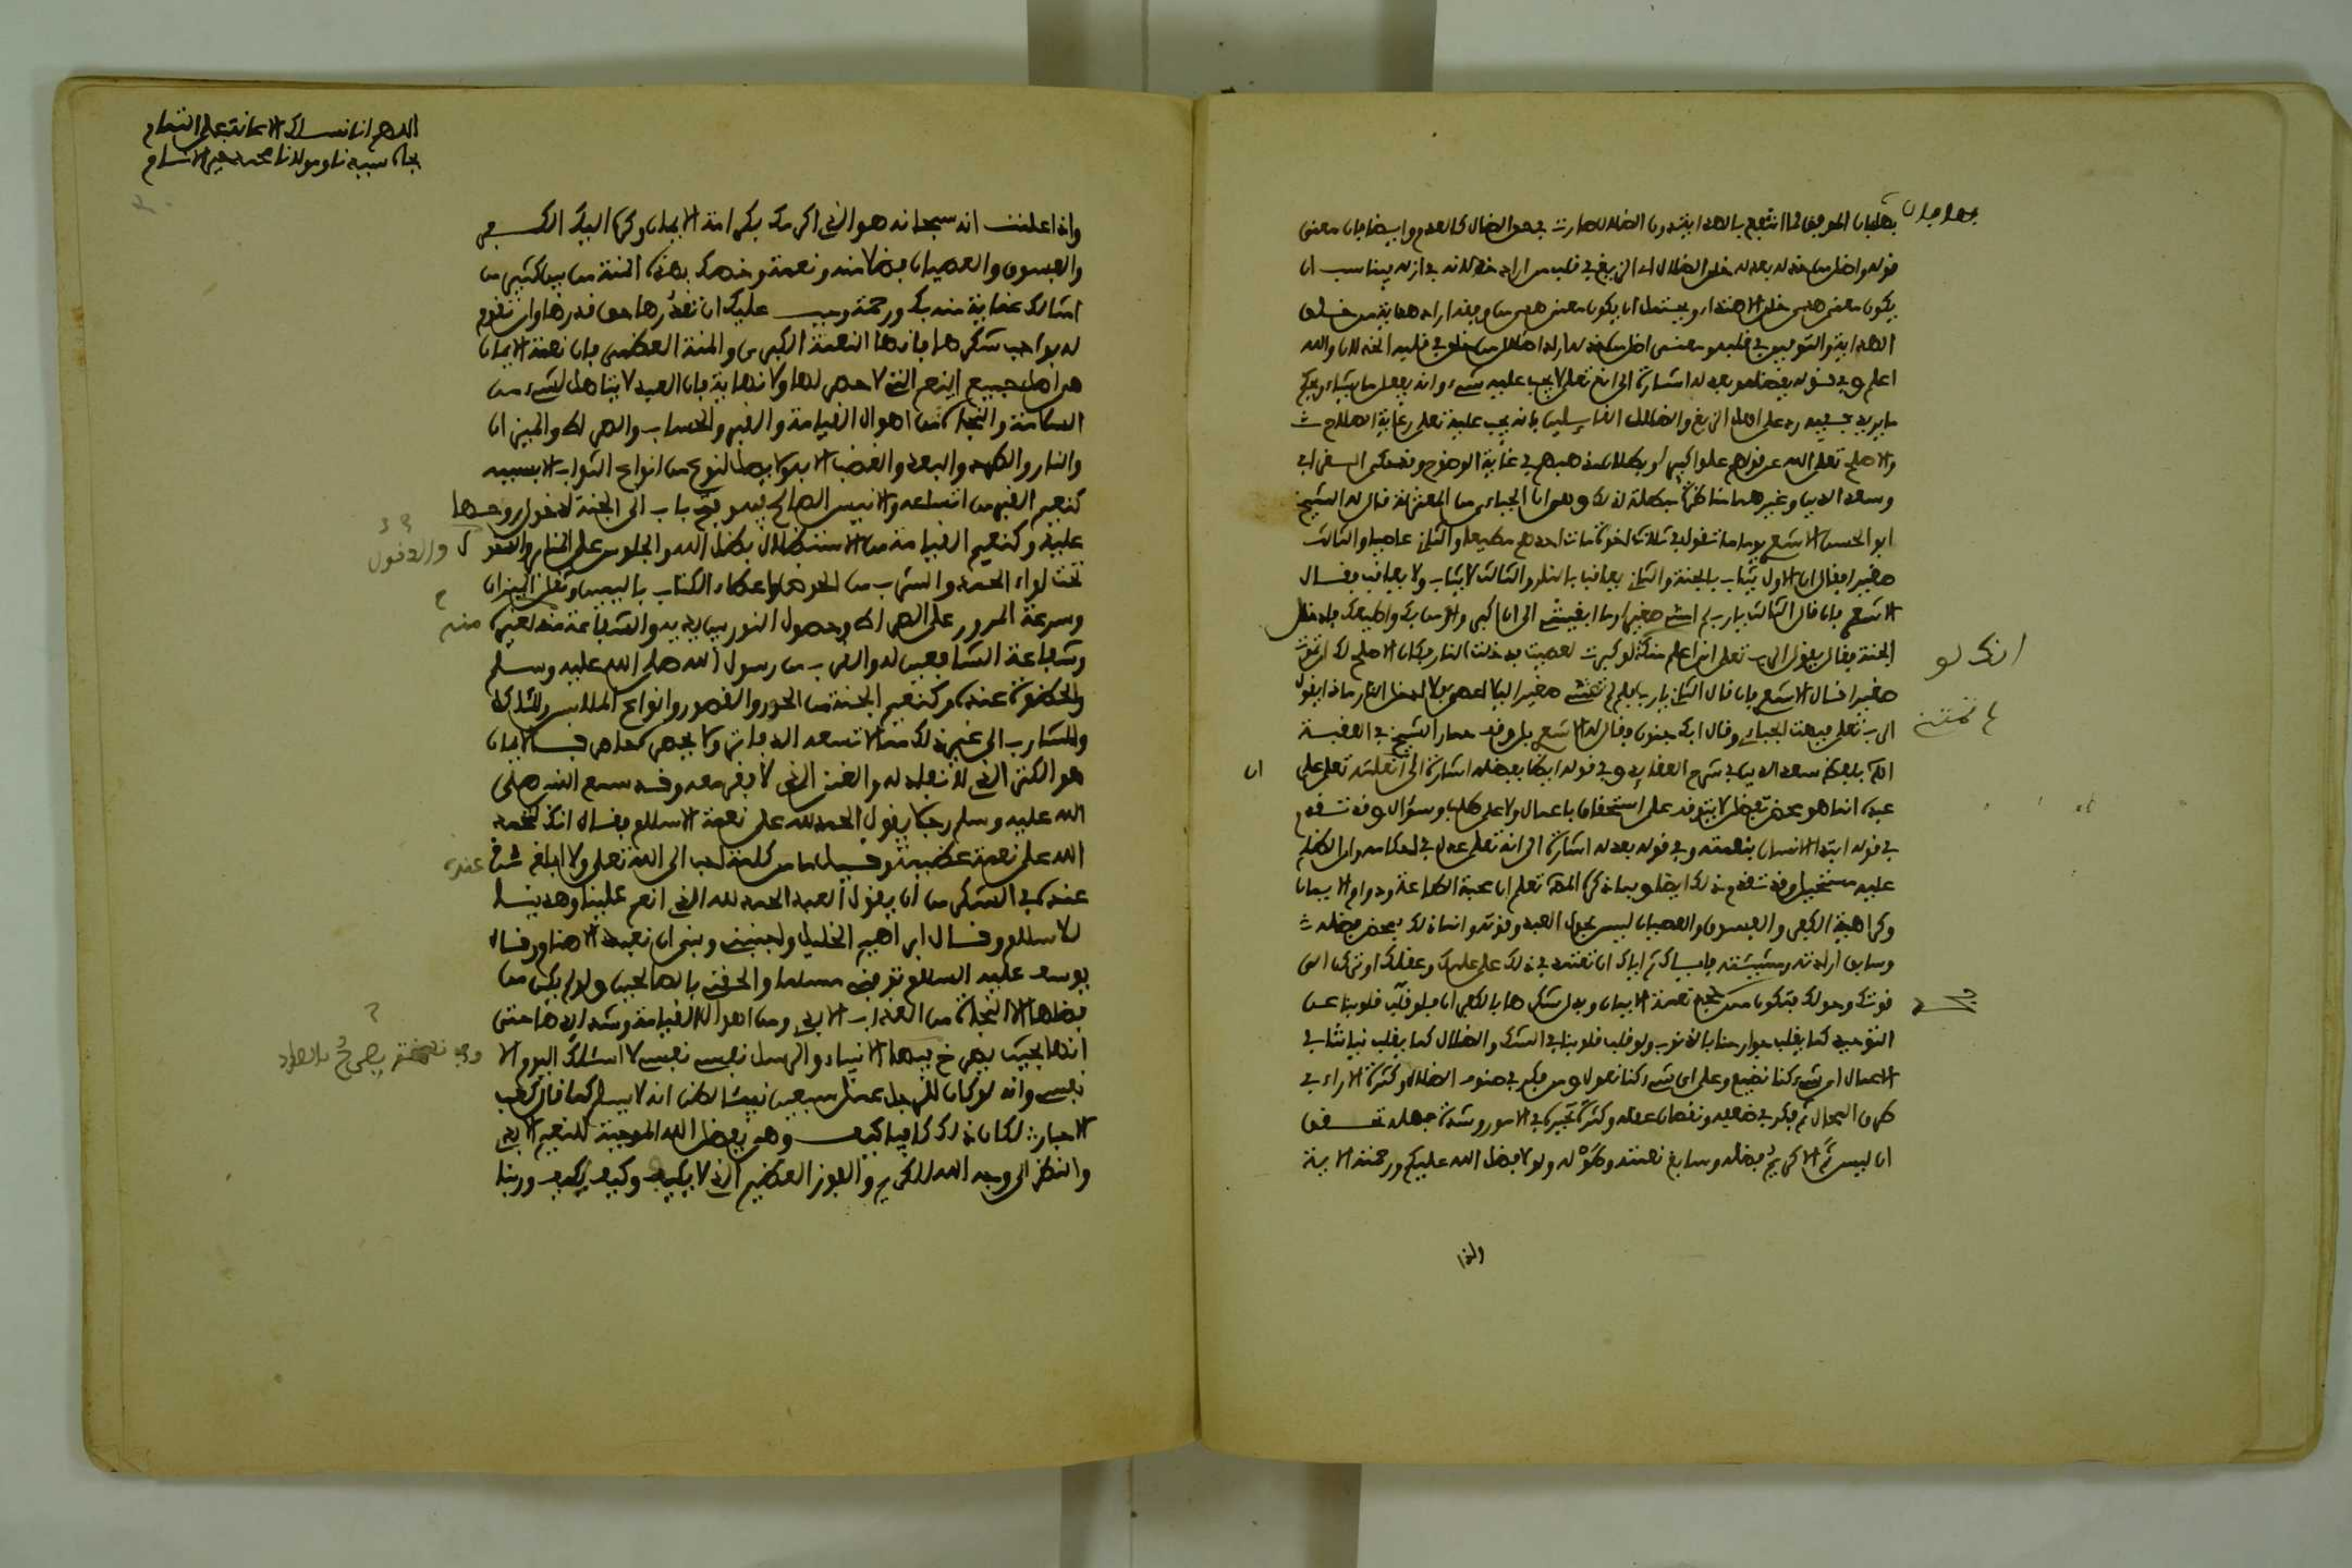 بطلبان الموفق لما انتفع بالهداية دون الضلال صارت في حق الضال كالعدم وايضا فان معنى
قوله واضل من خذله بعدله خلق الضلال اي الزيغ في قلب من اراد خذلانه في ازله يناسب ان
يكون معنى هدى خلق الاهتداء ويحتمل ان يكون معنى هدى من وفقه اراد هداية من خلق
الهداية والتوفيق في قلبه ومعنى اضل من خذله اراد اضلال من خلق في قلبه الخذلان والله
اعلم وفي قوله بفضله وبعدله اشارة الى انه تعلى لا يجب عليه شيء وانه يفعل ما يشاء ويحكم
ما يريد ففيه رد على اهل الزيغ والضلال القائلين بانه يجب عليه تعلى رعاية الصلاح
والاصلح تعلى الله عن قولهم علوا كبيرا وبطلان مذهبهم في غاية الوضوح وقد حكى السفراني
وسعد الدين وغيرهما مناظرة مبطلة لذلك وهي ان الجباءي من المعتزلة قال له الشيخ
ابو الحسن الاشعري ما تقول في ثلاث اخوة مات احدهم مطيعا والثاني عاصيا والثالث
صغيرا فقال ان الاول يثاب بالجنة والثاني يعاقب بالنار والثالث لا يثاب ولا يعاقب فقال
الاشعري فان قال الثالث يارب لم امتني صغيرا وما ابقيتني الى ان اكبر واومن بك واطيعك فادخل
الجنة فقال يقول الرب تعلى اني اعلم منك لو كبرت لعصيت فدخلت النار فكان الاصلح لك ان تموت
صغيرا قال الاشعري فان قال الثاني يارب لم لم تمتني صغيرا ليلا اعصي فلا ادخل النار ماذا يقول
الرب تعلى فبهت الجباءي وقال ابك جنون فقال له الاشعري بل وقف حمار الشيخ في العقبة
انك لو
لم تمتني
الخ بلفظ سعد الدين في شرح العقايد وفي قوله ايضا بفضله اشارة الى ان نعمته تعلى على
ان
عبده انما هو محض تفضل لا يتوقف على استحقاق باعمال ولا على طلب وسؤال وقد تقدم
في قوله ابتدا الانسان بنعمته وفي قوله بعدله اشارة الى انه تعلى عدل في احكامه وان الظلم
عليه مستحيل وقد تقدم ذلك ايضا وبما ذكره المص تعلم ان محبة الطاعة ودوام الايمان
وكراهية الكفر والفسوق والعصيان ليس بحول العبد وقوته وانما ذلك بمحض فضله
وسابق ارادته ومشيئته فاياك ثم اياك ان تعتمد في ذلك على علمك وعقلك او تركن الى
قوتك وحولك فتكون ممن كفر نعمة الايمان وبدل شكرها بالكفران فلو قلب قلوبنا عن
التوحيد كما يقلب جوارحنا بالذنوب ولو قلب قلوبنا في الشك والضلال كما يقلب نياتنا في
الاعمال اي شيء كنا نصنع وعلى اي شيء كنا نعول ومن فكر في صنوف الضلال وكثرة الاراء في
طرق المحال ثم فكر في ضعفه ونقصان عقله وكثرة تحيره في الامور وشدة جهله تحقق
ان ليس ثم الا كريم فضله وسابغ نعمته وطوله ولولا فضل الله عليكم ورحمته الاية
واذا
اللهم انا نسالك الاعانة على التمام
بجاه سيدنا ومولانا محمد خير الانام
واذا علمت انه سبحانه هو الذي اكرمك بكرامة الايمان وكره اليك الكفر
والفسوق والعصيان فضلا منه ونعمة وخصك بهذه المنة من بين كثير من
امثالك عناية منه بك ورحمة وجب عليك ان تقدرها حق قدرها وان تقوم
له بواجب شكرها فانها النعمة الكبرى والمنة العظمى فان نعمة الايمان
هي اصل جميع النعم التي لا حصر لها ولا نهاية فان العبد لا يتاهل لشيء من
السلامة والنجاة من اهوال القيامة والقبر والحساب والصراط والميزان
والنار والطرد والبعد والغضب الا به ولا يصل لنوع من انواع الثواب الا بسببه
كنعيم القبر من اتساعه والانيس الصالح فيه وفتح باب الى الجنة لدخول روحها
عليه وكنعيم القيامة من الاستظلال بظل الله والجلوس على المنابر
والدخول
تحت لواء الحمد والشرب من الحوض واعطاء الكتاب باليمين وثقل الميزان
وسرعة المرور على الصراط وحصول النور بين يديه والشفاعة منه لغيره
منه
وشفاعة الشافعين له والقرب من رسول الله صلى الله عليه وسلم
والحضوة عنده وكنعيم الجنة من الحور والقصور وانواع الملابس والماكل
والمشارب الى غير ذلك مما لا تسعه الدفاتر ولا يحصره حاصر فالايمان
هو الكنز الذي لا نفاد له والغنى الذي لا فقر معه وقد سمع النبي صلى
الله عليه وسلم رجلا يقول الحمد لله على نعمة الاسلام فقال انك لتحمد
الله على نعمة عظيمة وقيل ما من كلمة احب الى الله تعلى ولا ابلغ
عنده
عنده في الشكر من ان يقول العبد الحمد لله الذي انعم علينا وهدينا
للاسلام وقال ابراهيم الخليل واجنبني وبني ان نعبد الاصنام وقال
يوسف عليه السلام توفني مسلما والحقني بالصالحين ولو لم يكن من
فضلها الا النجاة من العذاب الابدي ومن اهوال القيامة وشدايدها حتى
انها لحيث يصرخ فيها الانبياء والرسل نفسي نفسي لا اسئلك اليوم الا
نفسي وانه لو كان للرجل عمل سبعين نبيئا لظن انه لا يسلم كما قال كعب
الاحبار لكان ذلك كافيا كيف وهي بفضل الله الموجبة للنعيم الابدي
والنظر الى وجه الله الكريم والفوز العظيم الذي لا يكيف وكيف يكيف وربنا